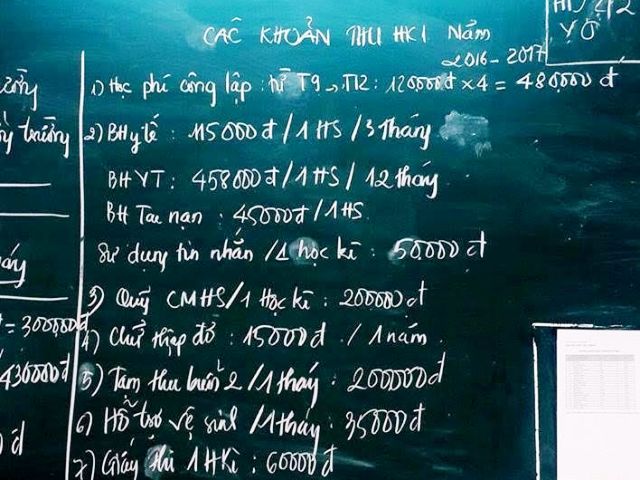 CÁC KHOẢN THU HKI Năm
2016-2017
1) Học phí công lập : từ T9 → T12 : 120000đ x 4 = 480,000 đ
2) BH y tế : 115000đ / 1 HS / 3 tháng
BHYT : 458000đ / 1 HS / 12 tháng
BH Tai nạn : 45000đ / 1HS
Sử dụng tin nhắn / 1 học kì : 50,000 đ
3) Quỹ CMHS / 1 Học kì : 200000đ
4) Chữ thập đỏ : 15000đ / 1 năm
5) Tạm thu buổi 2 / 1 tháng : 200000đ
6) Hỗ trợ vệ sinh / 1 tháng : 35000đ
7) Giấy thi 1 HKì : 60000đ
trưởng
= 300,000đ
430000đ
đ